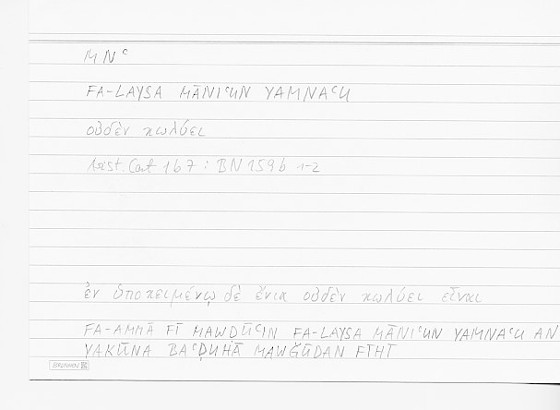 MNʿ
FA-LAYSA MĀNIʿUN YAMNAʿU
οὐδὲν κωλύει
Arist. Cat 1b7 : BN 159b 1-2
ἐν ὑποκειμένῳ δὲ ἔνια οὐδὲν κωλύει εἶναι
FA-AMMĀ FĪ MAWḌŪʿIN FA-LAYSA MĀNIʿUN YAMNAʿU AN
YAKŪNA BAʿḌUHĀ MAWǦŪDAN FĪHI
BRUNNEN